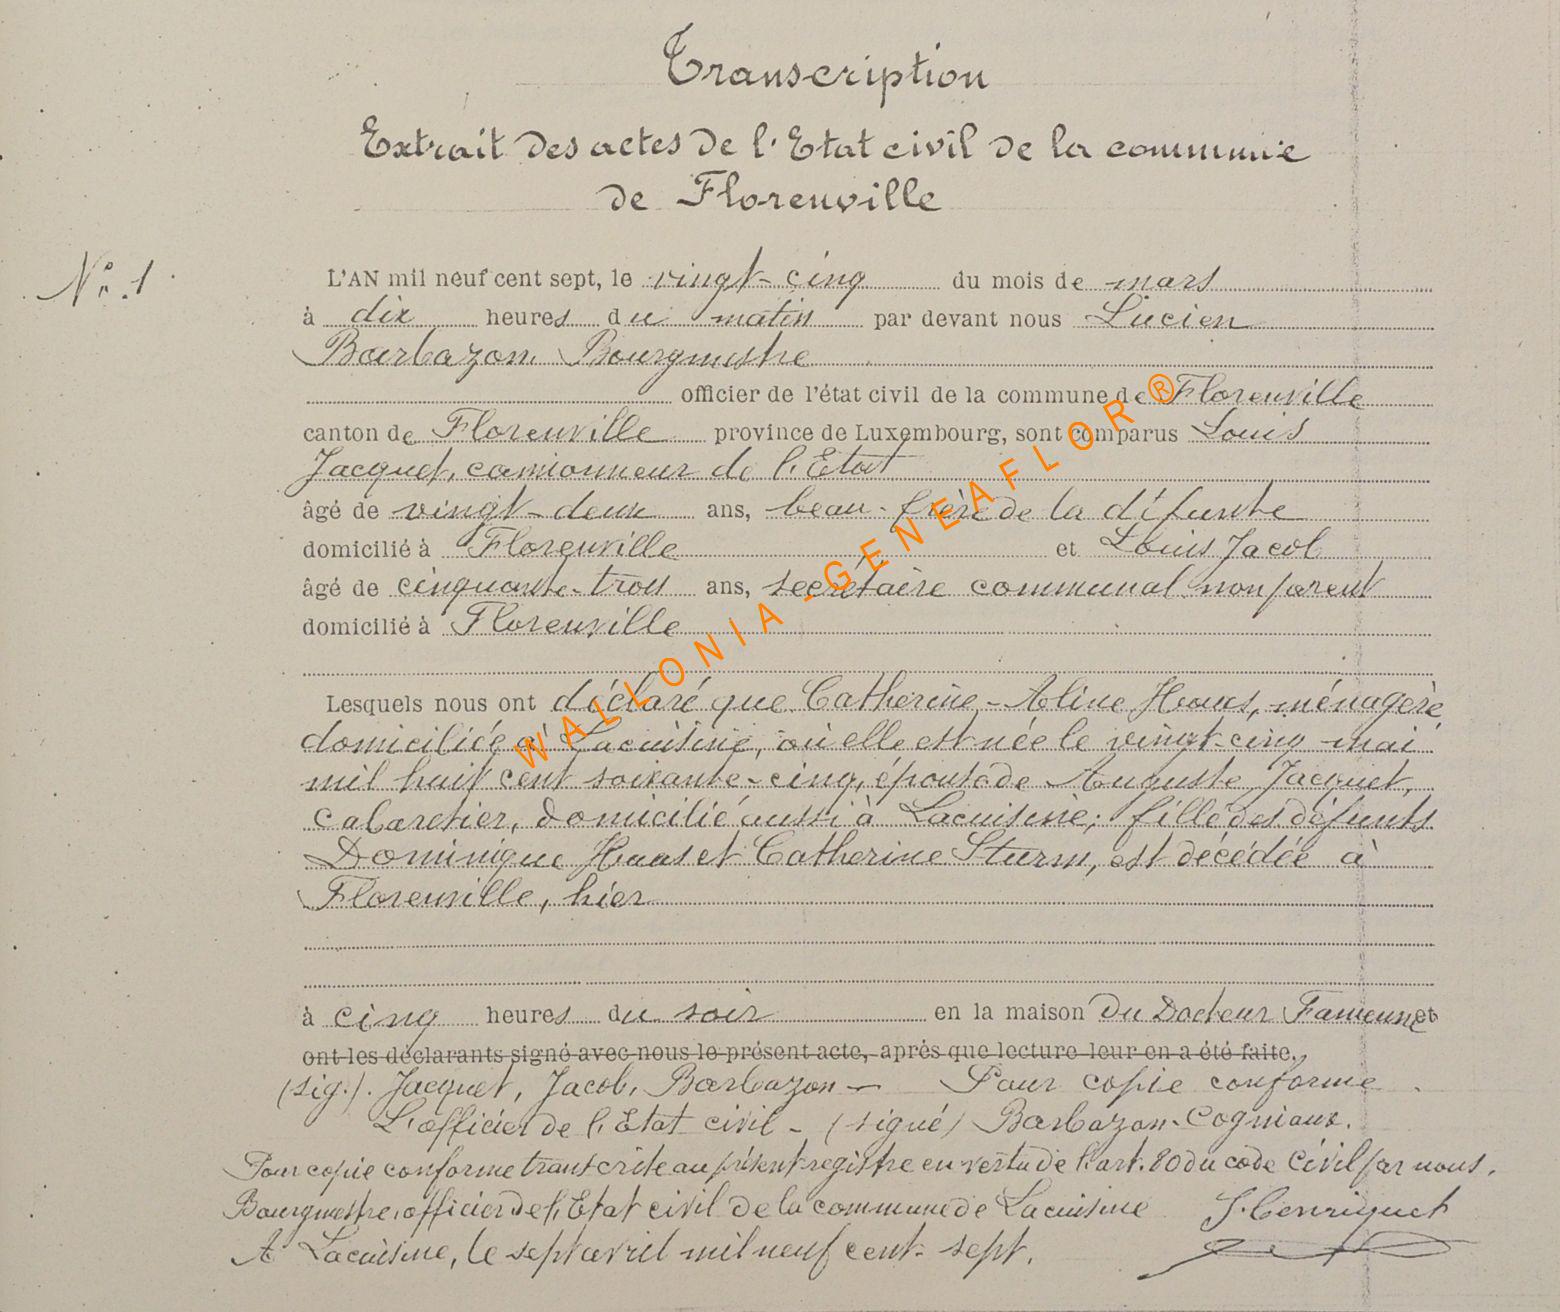 Transcription
Extrait des actes de l'Etat civil de la commune
de Florenville
N° 1
L'AN mil neuf cent sept, le vingt-cinq du mois de mars
à dix heures du matin par devant nous Lucien
Barbazon Bourgmestre
officier de l'état civil de la commune de Florenville
canton de Florenville province de Luxembourg, sont comparus Louis
Jacquet, camionneur de l'Etat
âgé de vingt-deux ans, beau-frère de la défunte
domicilié à Florenville et Louis Jacob
âgé de cinquante-trois ans, secrétaire communal non parent
domicilié à Florenville
Lesquels nous ont déclaré que Catherine-Aline Haas, ménagère
domiciliée à Lacuisine, où elle est née le vingt-cinq mai
mil huit cent soixante-cinq, épouse de Auguste Jacquet,
cabaretier, domicilié aussi à Lacuisine; fille des défunts
Dominique Haas et Catherine Sturm, est décédée à
Florenville, hier
à cinq heures du soir en la maison du Docteur Famenne et
ont les déclarants signé avec nous le présent acte, après que lecture leur en a été faite.
(sig.). Jacquet, Jacob, Barbazon — Pour copie conforme
L'officier de l'Etat civil - (signé) Barbazon-Cogniaux.
Pour copie conforme transcrite au présent registre en vertu de l'art. 80 du code civil par nous,
Bourgmestre, officier de l'Etat civil de la commune de Lacuisine J. Henriquet
A Lacuisine, le sept avril mil neuf cent-sept.
WALLONIA-GENEAFLOR®